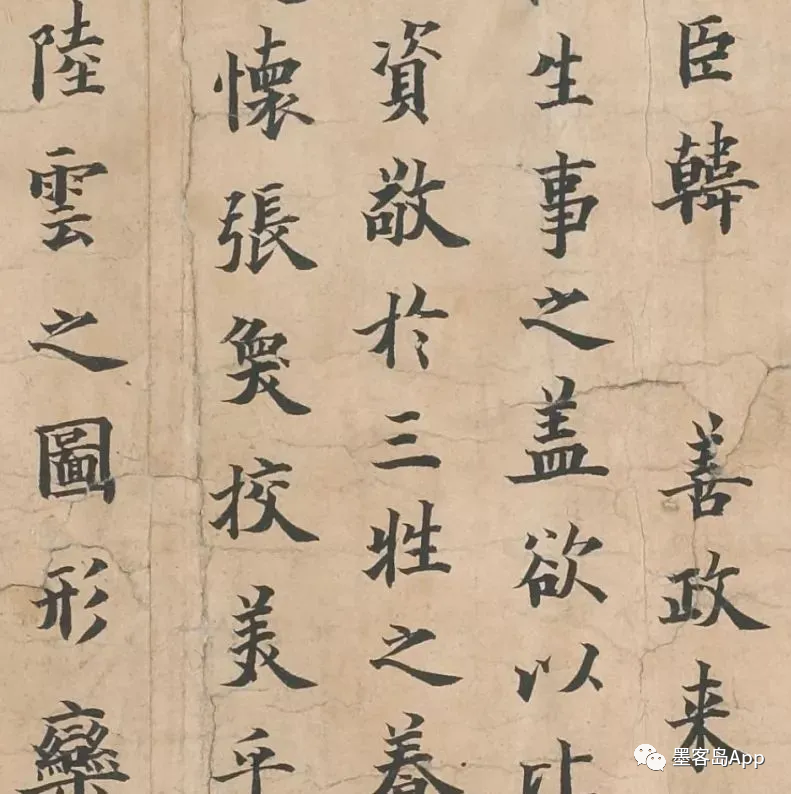 臣韓 善政来
生事之盖欲以
資敬於三牲之養
懷張奐挍美乎
陸雲之圖形欒
墨客岛App